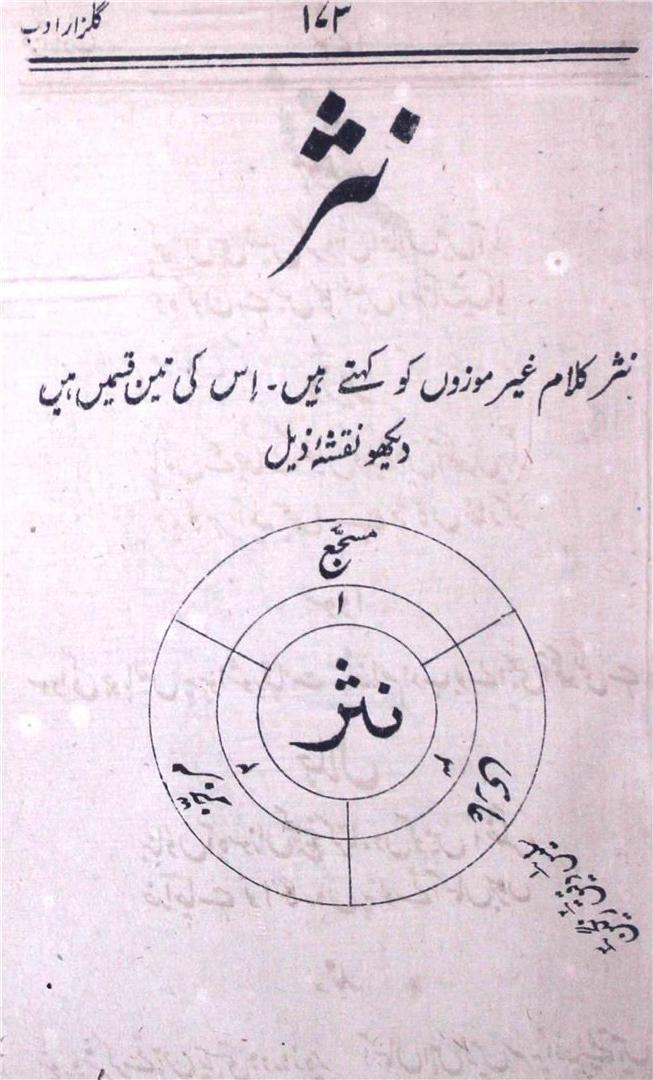 گلزار ادب
۱۷۳
نثر
نثر کلام غیر موزوں کو کہتے ہیں۔ اِس کی تین قسمیں ہیں
دیکھو نقشۂ ذیل
مسجّع
۱
نثر
۲
مرجز
۳
عاری